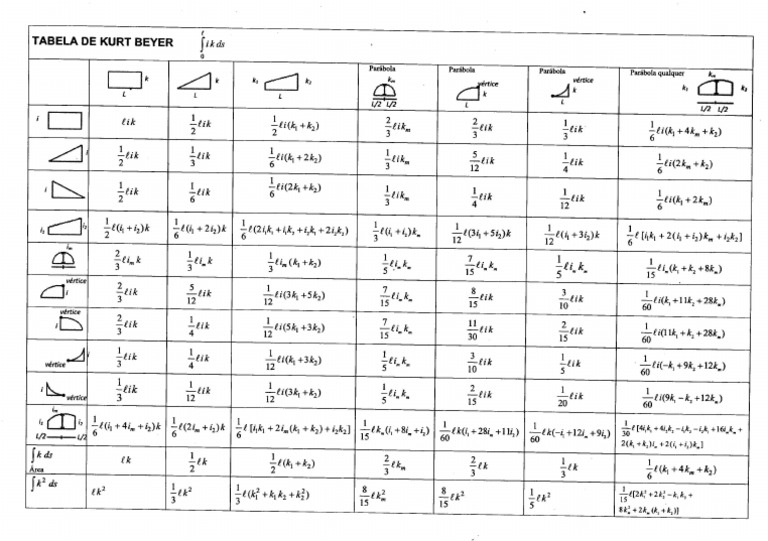 TABELA DE KURT BEYER ∫₀^ℓ i k ds
k L
k L
k₁ k₂ L
Parábola kₘ L/2 L/2
Parábola vértice k L
Parábola vértice k L
Parábola qualquer kₘ k₁ k₂ L/2 L/2
i ℓik 1/2 ℓik 1/2 ℓi(k₁+k₂) 2/3 ℓikₘ 2/3 ℓik 1/3 ℓik 1/6 ℓi(k₁+4kₘ+k₂)
i 1/2 ℓik 1/3 ℓik 1/6 ℓi(k₁+2k₂) 1/3 ℓikₘ 5/12 ℓik 1/4 ℓik 1/6 ℓi(2kₘ+k₂)
i 1/2 ℓik 1/6 ℓik 1/6 ℓi(2k₁+k₂) 1/3 ℓikₘ 1/4 ℓik 1/12 ℓik 1/6 ℓi(k₁+2kₘ)
i₁ i₂ 1/2 ℓ(i₁+i₂)k 1/6 ℓ(i₁+2i₂)k 1/6 ℓ(2i₁k₁+i₁k₂+i₂k₁+2i₂k₂) 1/3 ℓ(i₁+i₂)kₘ 1/12 ℓ(3i₁+5i₂)k 1/12 ℓ(i₁+3i₂)k 1/6 ℓ[i₁k₁+2(i₁+i₂)kₘ+i₂k₂]
iₘ 2/3 ℓiₘk 1/3 ℓiₘk 1/3 ℓiₘ(k₁+k₂) 1/5 ℓiₘkₘ 7/15 ℓiₘkₘ 1/5 ℓiₘkₘ 1/15 ℓiₘ(k₁+k₂+8kₘ)
vértice i 2/3 ℓik 5/12 ℓik 1/12 ℓi(3k₁+5k₂) 7/15 ℓiₘkₘ 8/15 ℓik 3/10 ℓik 1/60 ℓi(k₁+11k₂+28kₘ)
vértice i 2/3 ℓik 1/4 ℓik 1/12 ℓi(5k₁+3k₂) 7/15 ℓiₘkₘ 11/30 ℓik 2/15 ℓik 1/60 ℓi(11k₁+k₂+28kₘ)
vértice i 1/3 ℓik 1/4 ℓik 1/12 ℓi(k₁+3k₂) 1/5 ℓiₘkₘ 3/10 ℓik 1/5 ℓik 1/60 ℓi(-k₁+9k₂+12kₘ)
i vértice 1/3 ℓik 1/12 ℓik 1/12 ℓi(3k₁+k₂) 1/5 ℓiₘkₘ 2/15 ℓik 1/20 ℓik 1/60 ℓi(9k₁-k₂+12kₘ)
i₁ iₘ i₂ L/2 L/2 1/6 ℓ(i₁+4iₘ+i₂)k 1/6 ℓ(2iₘ+i₂)k 1/6 ℓ[i₁k₁+2iₘ(k₁+k₂)+i₂k₂] 1/15 ℓkₘ(i₁+8iₘ+i₂) 1/60 ℓk(i₁+28iₘ+11i₂) 1/60 ℓk(-i₁+12iₘ+9i₂) 1/30 ℓ[4i₁k₁+4i₂k₂-i₁k₂-i₂k₁+16iₘkₘ+
2(k₁+k₂)iₘ+2(i₁+i₂)kₘ]
∫k ds Área ℓk 1/2 ℓk 1/2 ℓ(k₁+k₂) 2/3 ℓkₘ 2/3 ℓk 1/3 ℓk 1/6 ℓ(k₁+4kₘ+k₂)
∫k² ds ℓk² 1/3 ℓk² 1/3 ℓ(k₁²+k₁k₂+k₂²) 8/15 ℓkₘ² 8/15 ℓk² 1/5 ℓk² 1/15 ℓ[2k₁²+2k₂²-k₁k₂+
8kₘ²+2kₘ(k₁+k₂)]